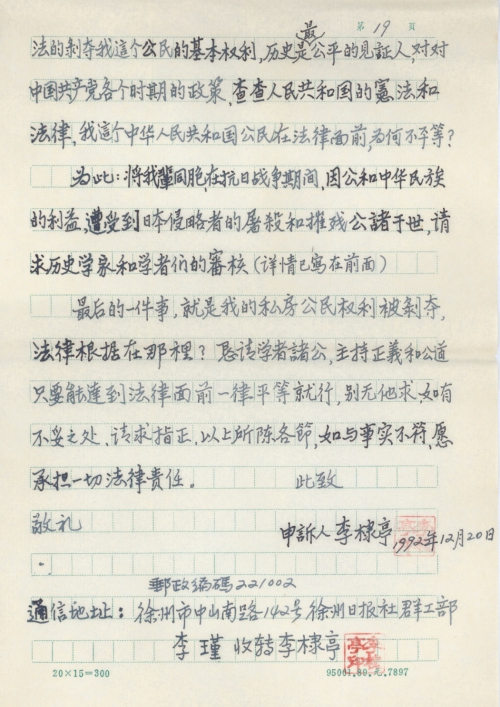 第19頁
法的剝夺我這个公民的基本权利，历史是最公平的見証人，对对
中国共产党各个时期的政策，查查人民共和国的憲法和
法律，我這个中华人民共和国公民在法律面前，为何不平等？
为此：将我輩同胞，在抗日战争期间，因公和中华民族
的利益，遭受到日本侵略者的屠殺和摧残公諸于世，请
求历史学家和学者们的審核（详情已寫在前面）
最后的一件事，就是我的私房公民权利被剝夺，
法律根据在那裡？恳请学者諸公，主持正義和公道
只要能達到法律面前一律平等就行，别无他求，如有
不妥之处，请求指正，以上所陈各節，如与事实不符，愿
承担一切法律责任。 此致
敬礼
申訴人 李棣亭
1992年12月20日
郵政编碼221002
通信地址：徐州市中山南路142号徐州日报社群工部
李瑾 收转李棣亭
20×15=300 95001.89.元.7897